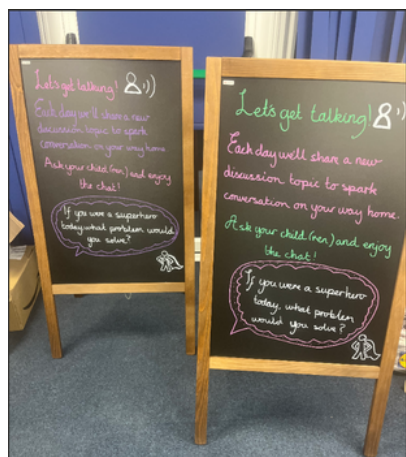 Let's get talking!
Each day we'll share a new
discussion topic to spark
conversation on your way home.
Ask your child(ren) and enjoy
the chat!
If you were a superhero
today, what problem would
you solve?
Let's get talking!
Each day we'll share a new
discussion topic to spark
conversation on your way home.
Ask your child(ren) and enjoy
the chat!
If you were a superhero
today, what problem
would you solve?